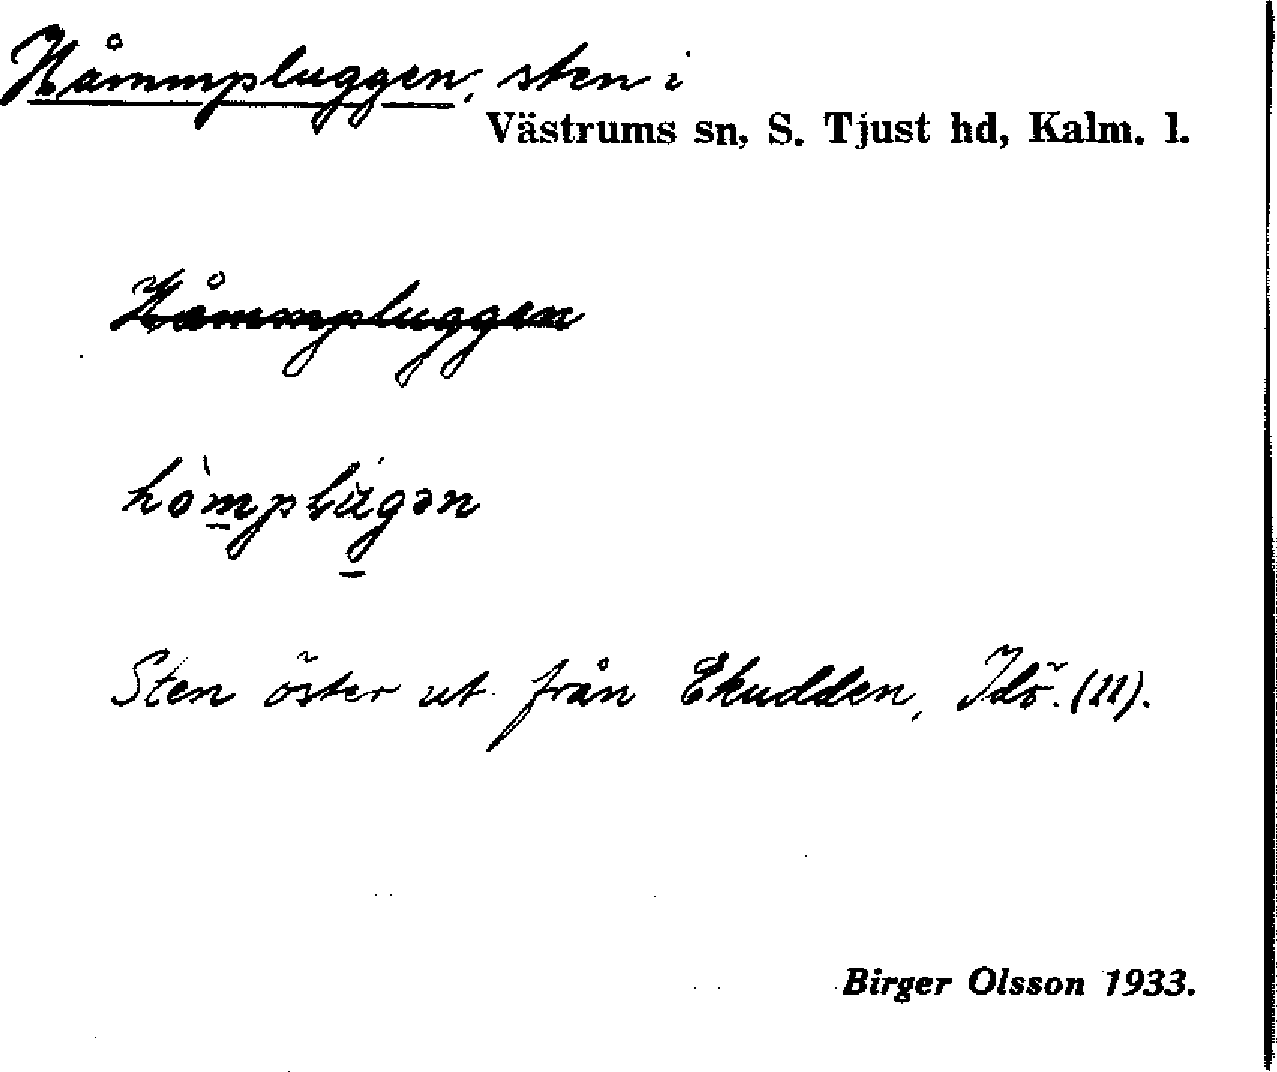 Håmmpluggen, sten i
Västrums sn, S. Tjust hd, Kalm. l.
Håmmpluggen
Sten öster ut från Ekudden, Idö. (11).
Birger Olsson 1933.